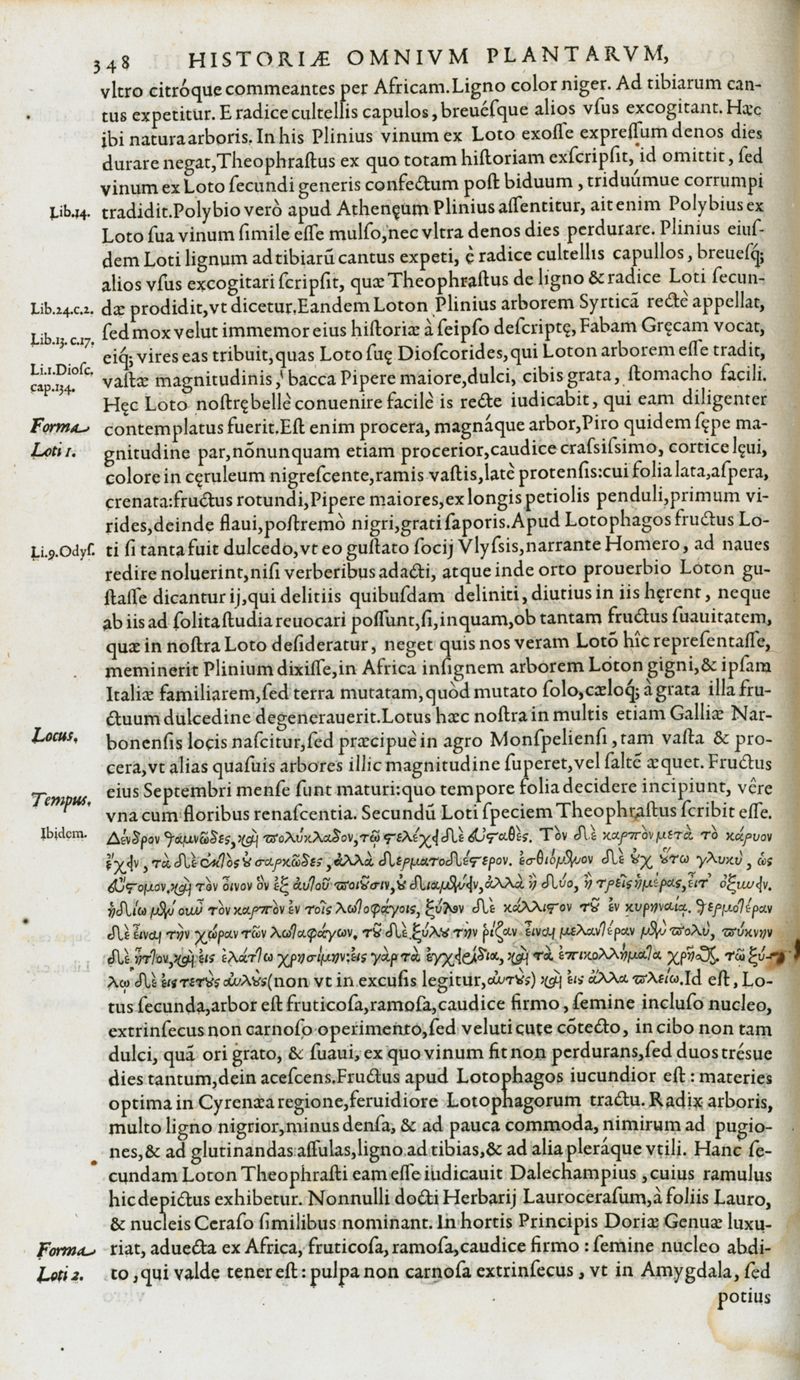 348 HISTORIÆ OMNIVM PLANTARVM,
vltro citróque commeantes per Africam. Ligno color niger. Ad tibiarum can-
tus expetitur. E radice cultellis capulos, breuésque alios vsus excogitant. Hæc
ibi natura arboris. In his Plinius vinum ex Loto exosse expressum denos dies
durare negat, Theophrastus ex quo totam historiam exscripsit, id omittit, sed
vinum ex Loto secundi generis confectum post biduum, triduúmue corrumpi
Lib.14. tradidit. Polybio verò apud Athenęum Plinius assentitur, ait enim Polybius ex
Loto sua vinum simile esse mulso, nec vltra denos dies perdurare. Plinius eius-
dem Loti lignum ad tibiarū cantus expeti, è radice cultellis capullos, breuesq́;
alios vsus excogitari scripsit, quæ Theophrastus de ligno & radice Loti secun-
Lib.24.c.2. dæ prodidit, vt dicetur. Eandem Loton Plinius arborem Syrticā rectè appellat,
Lib.13. c.17. sed mox velut immemor eius historiæ à seipso descriptę, Fabam Gręcam vocat,
eiq́; vires eas tribuit, quas Loto suę Dioscorides, qui Loton arborem esse tradit,
Li.1.Diosc. cap.134. vastæ magnitudinis, bacca Pipere maiore, dulci, cibis grata, stomacho facili.
Hęc Loto nostrę bellè conuenire facilè is recte iudicabit, qui eam diligenter
Forma contemplatus fuerit. Est enim procera, magnáque arbor, Piro quidem sępe ma-
Loti 1. gnitudine par, nōnunquam etiam procerior, caudice crassissimo, cortice lęui,
colore in cęruleum nigrescente, ramis vastis, latè protensis: cui folia lata, aspera,
crenata: fructus rotundi, Pipere maiores, ex longis petiolis penduli, primum vi-
rides, deinde flaui, postremò nigri, grati saporis. Apud Lotophagos fructus Lo-
Li.9.Odys. ti si tanta fuit dulcedo, vt eo gustato socij Vlyssis, narrante Homero, ad naues
redire noluerint, nisi verberibus adacti, atque inde orto prouerbio Loton gu-
stasse dicantur ij, qui delitiis quibusdam deliniti, diutius in iis hęrent, neque
ab iis ad solita studia reuocari possunt, si, inquam, ob tantam fructus suauitatem,
quæ in nostra Loto desideratur, neget quis nos veram Lotō hîc repræsentasse,
meminerit Plinium dixisse, in Africa insignem arborem Loton gigni, & ipsam
Italiæ familiarem, sed terra mutatam, quòd mutato solo, cæloq́; à grata illa fru-
ctuum dulcedine degenerauerit. Lotus hæc nostra in multis etiam Galliæ Nar-
Locus. bonensis locis nascitur, sed præcipuè in agro Monspeliensi, tam vasta & pro-
cera, vt alias quasuis arbores illic magnitudine superet, vel saltē æquet. Fructus
Tempus. eius Septembri mense sunt maturi: quo tempore folia decidere incipiunt, vêre
vna cum floribus renascentia. Secundū Loti speciem Theophrastus scribit esse.
Ibidem. Δένδρον θαμνῶδες, καὶ πολύκλαδον, τῷ στελέχει δὲ εὐσταθὲς. Τὸν δὲ καρπὸν μετὰ τὸ κάρυον
ἔχειν, τὰ δὲ ἐκτὸς οὐ σαρκῶδες, ἀλλὰ δερματοδέστερον. ἐσθιόμενον δὲ οὐχ οὕτω γλυκὺ, ὡς
εὔστομον, καὶ τὸν οἶνον ὃν ἐξ αὐτοῦ ποιοῦσιν, οὐ διαμένειν, ἀλλὰ ἢ δύο, ἢ τρεῖς ἡμέρας, εἶτ' ὀξύνειν.
ἡδίω μὲν οὖν τὸν καρπὸν ἐν τοῖς λωτοφάγοις, ξύλον δὲ κάλλιστον τοῦ ἐν κυρηναίᾳ. θερμοτέραν
δὲ εἶναι τὴν χώραν τῶν λωτοφάγων. τοῦ δὲ ξύλου τὴν ῥίζαν εἶναι μελαντέραν μὲν πολὺ, πύκνην
δὲ ἧττον, καὶ εἰς ἐλάττω χρησίμην: εἰς γὰρ τὰ ἐγχειρίδια, καὶ τὰ ἐπικολλήματα χρῆσθαι. τῷ ξύ-
λῳ δὲ εἰς τε τοὺς αὐλοὺς (non vt in excusis legitur, αὐτοὺς) καὶ εἰς ἄλλα πλείω. Id est, Lo-
tus secunda, arbor est fruticosa, ramosa, caudice firmo, semine incluso nucleo,
extrinsecus non carnoso operimento, sed veluti cute cōtecto, in cibo non tam
dulci, quā ori grato, & suaui, ex quo vinum fit non perdurans, sed duos trésue
dies tantum, dein acescens. Fructus apud Lotophagos iucundior est: materies
optima in Cyrenæa regione, feruidiore Lotophagorum tractu. Radix arboris,
multo ligno nigrior, minus densa, & ad pauca commoda, nimirum ad pugio-
nes, & ad glutinandas assulas, ligno ad tibias, & ad alia pleráque vtili. Hanc se-
cundam Loton Theophrasti eam esse iudicauit Dalechampius, cuius ramulus
hic depictus exhibetur. Nonnulli docti Herbarij Laurocerasum, à foliis Lauro,
& nucleis Ceraso similibus nominant. In hortis Principis Doriæ Genuæ luxu-
Forma riat, aduecta ex Africa, fruticosa, ramosa, caudice firmo: semine nucleo abdi-
Loti 2. to, qui valde tener est: pulpa non carnosa extrinsecus, vt in Amygdala, sed
potius